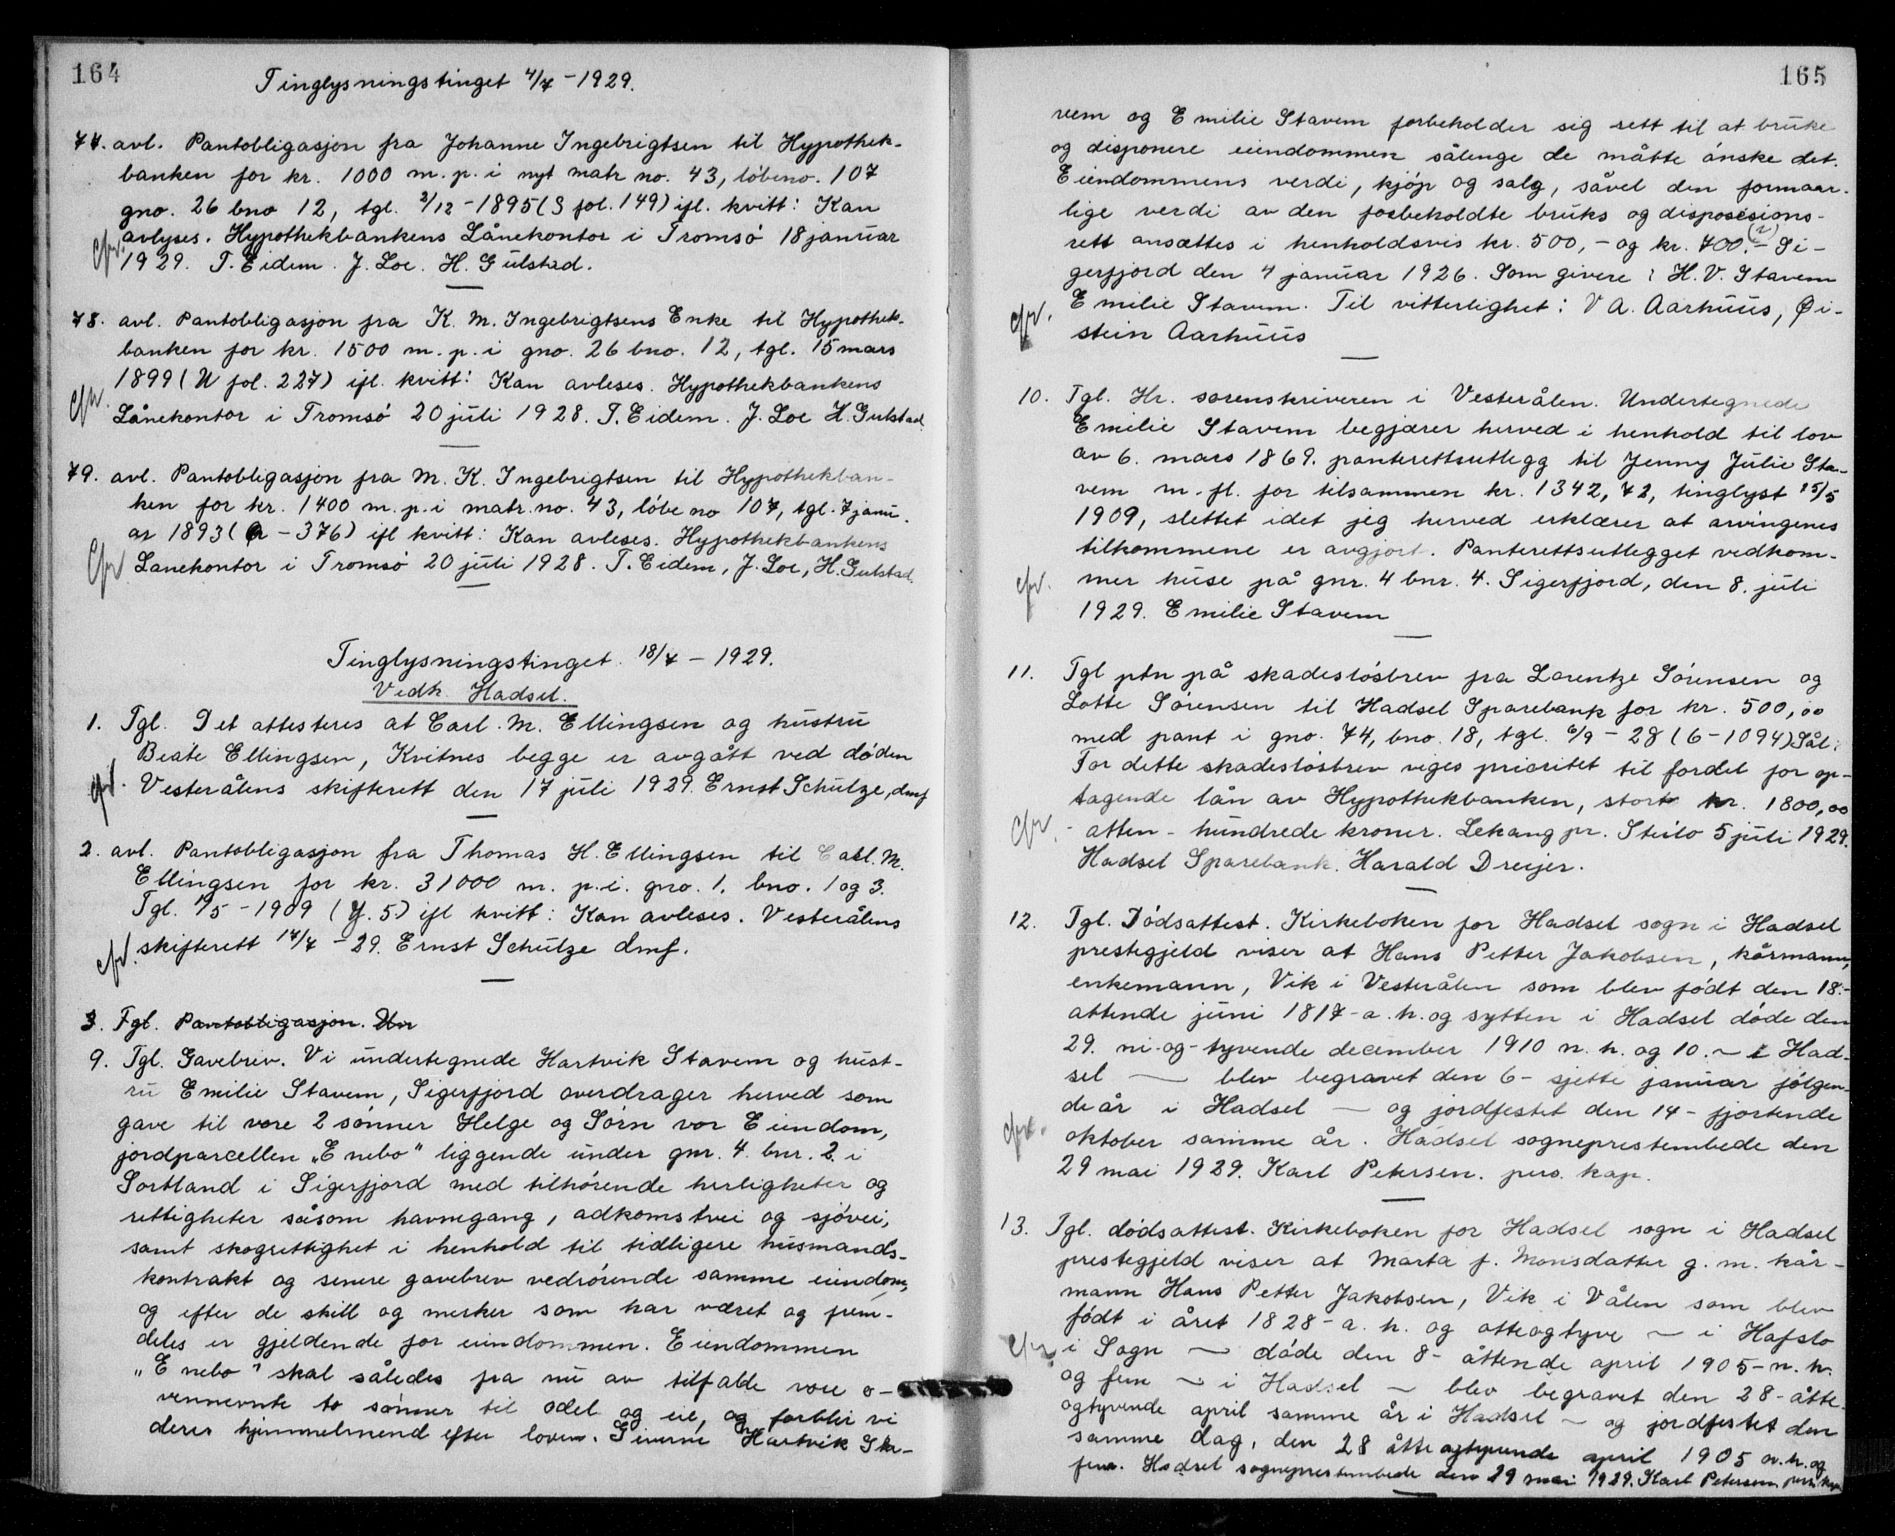 164
Tinglysningstinget 4/7 - 1929.
77. avl. Pantobligasjon fra Johanne Ingebrigtsen til Hypothek-
banken for kr. 1000 m. p. i nyt matr no. 43, löbeno. 107
gno. 26 bno 12, tgl. 2/12 - 1895 (S fol. 149) ifl. kvitt: Kan
avlyses. Hypothekbankens Lånekontor i Tromsó 18 januar
cfr. 1929. T. Eidem. J. Loe. H. Gulstad.
78. avl. Pantobligasjon fra K. M. Ingebrigtsens Enke til Hypothek-
banken for kr. 1500 m. p. i gno. 26 bno. 12, tgl. 15 mars
1899 (U fol. 227) ifl. kvitt: Kan avleses. Hypothekbankens
cfr. Lånekontor i Tromsó 20 juli 1928. T. Eidem. J. Loe H. Gulstad.
79. avl. Pantobligasjon fra M. K. Ingebrigtsen til Hypothekban-
ken for kr. 1400 m. p. i matr. no. 43, löbe no 107, tgl. 7 janu-
ar 1893 ( - 376) ifl kvitt: Kan avleses. Hypothekbankens
cfr Lanekontor i Tromsó 20 juli 1928. T. Eidem, J. Loe, H. Gulstad.
Tinglysningstinget 18/7 - 1929.
Vedk. Hadsel.
1. Tgl. Det attesteres at Carl. M. Ellingsen og hustru
Beate Ellingsen, Kvitnes begge er avgått ved dóden
cfr. Vesterålens skifterett den 17 juli 1929. Ernst Schulze, dmf
2. avl. Pantobligasjon fra Thomas H. Ellingsen til Carl. M.
Ellingsen for kr. 31000 m. p. i. gno. 1. bno. 1 og 3.
Tgl. /5 - 1909 (Y. 5) ifl kvitt: Kan avleses. Vesterålens
cfr. skifterett 17/7 - 29. Ernst Schulze dmf.
3. Tgl. Pantobligasjon.
9. Tgl. Gavebriv. Vi undertegnede Hartvik Stavem og hust-
ru Emilie Stavem, Sigerfjord overdrager herved som
gave til vore 2 sónner Helge og Sórn vor Eiendom,
jordparcellen „Enebo" liggende under gnr. 4. bnr. 2. i
Sortland i Sigerfjord med tilhórende herligheter og
rettigheter såsom havnegang, adkomstvei og sjóvei,
samt skogrettighet i henhold til tidligere husmands-
kontrakt og senere gavebrev vedrórende samme eiendom,
og efter de skill og merker som har været og frem-
deles er gjeldende for eiendommen. Eiendommen
„Enebo" skal således fra nu av tilfalde vore o-
vennevnte to sónner til odel og eie, og forblir vi
deres hjemmelmend efter loven. Giverne Hartvik Sta-
165
vem og Emilie Stavem forbeholder sig rett til at bruke
og disponere eiendommen sålenge de måtte ónske det.
Eiendommens verdi, kjóp og salg, såvel den formaar-
lige verdi av den forbeholdte bruks og disposesions-
rett ansættes i henholdsvis kr. 500,- og kr. 700.- Si-
gerfjord den 4 januar 1926. Som givere: H. V. Stavem
Emilie Stavem. Til vitterlighet: V A. Aarhuus, Øi-
cfr. stein Aarhuus
10. Tgl. Hr. sorenskriveren i Vesterålen. Undertegnede
Emilie Stavem begjærer herved i henhold til lov
av 6. mars 1869. panterettsutlegg til Jenny Julie Sta-
vem m. fl. for tilsammen kr. 1342,72, tinglyst 15/5
1909, slettet idet jeg herved erklærer at arvingenes
tilkommene er avgjort. Panterettsutlegget vedkom-
cfr. mer huse på gnr. 4 bnr. 4. Sigerfjord, den 8. juli
1929. Emilie Stavem
11. Tgl ptn på skadeslósbrev fra Lorentze Sórensen og
Lotte Sórensen til Hadsel Sparebank for kr. 500,00
med pant i gno. 74, bno. 18, tgl. 6/9 - 28 (6 - 1094) Sål:
For dette skadeslósbrev viges prioritet til fordel for op-
tagende lån av Hypothekbanken, stort kr. 1800,00
cfr. - atten - hundrede kroner. Lekang pr. Steilo 5 juli 1929.
Hadsel Sparebank. Harald Dreijer.
12. Tgl. Dódsattest. Kirkeboken for Hadsel sogn i Hadsel
prestegjeld viser at Hans Petter Jakobsen, kårmann,
enkemann, Vik i Vesterålen som blev fódt den 18.-
attende juni 1817 - a. h. og sytten i Hadsel dóde den
29. ni-og-tyvende december 1910 n. h. og 10. ~ i Had-
sel — blev begravet den 6 - sjette januar fólgen-
de år i Hadsel — og jordfestet den 14 - fjortende
cfr. oktober samme år. Hadsel sogneprestembede den
29 mai 1929. Karl Petersen. pers. kap.
13. Tgl. dódsattest. Kirkeboken for Hadsel sogn i Hadsel
prestegjeld viser at Marta f. Monsdatter g. m. kår-
mann Hans Petter Jakobsen, Vik i Vålen som blev
fódt i året 1828 - a. h. og otteogtyve ~ i Hafslo
cfr i Sogn ~ dóde den 8 - åttende april 1905 - n. h.
og fem ~ i Hadsel ~ blev begravet den 28 - åtte
ogtyvende april samme år i Hadsel ~ og jordfestet den
samme dag, den 28 åtteogtyvende april 1905 n. h. og
fem. Hadsel sogneprestembede den 29 mai 1929. Karl Petersen pers. kap.